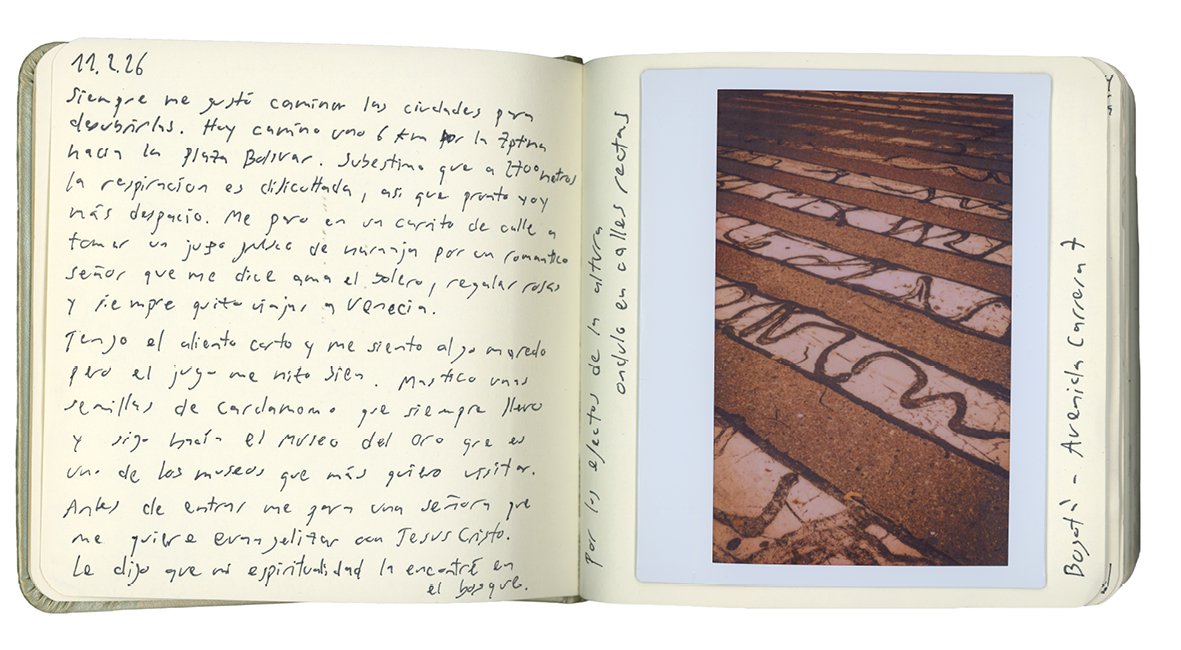 11.2.26
Siempre me gustó caminar las ciudades para
descubrirlas. Hoy camino unos 6 km por la 7ptima
hacia la Plaza Bolivar. Subestimo que a 2700 metros
la respiracion es dificultada, asi que pronto voy
más despacio. Me paro en un carrito de calle a
tomar un jugo de naranja por un romantico
señor que me dice ama el bolero, regalar rosas
y siempre quiso viajar a Venecia.
Tengo el aliento corto y me siento algo mareado
pero el jugo me hizo bien. Mastico unas
semillas de Cardamomo que siempre llevo
y sigo hacia el Museo del Oro que es
uno de los museos que más quiero visitar.
Antes de entrar me para una señora que
me quiere evangelizar con Jesus Cristo.
Le digo que mi espiritualidad la encontré en
el bosque.
Por los efectos de la altura
ondulo en calles rectas
Bogotà - Avenida Carrera 7